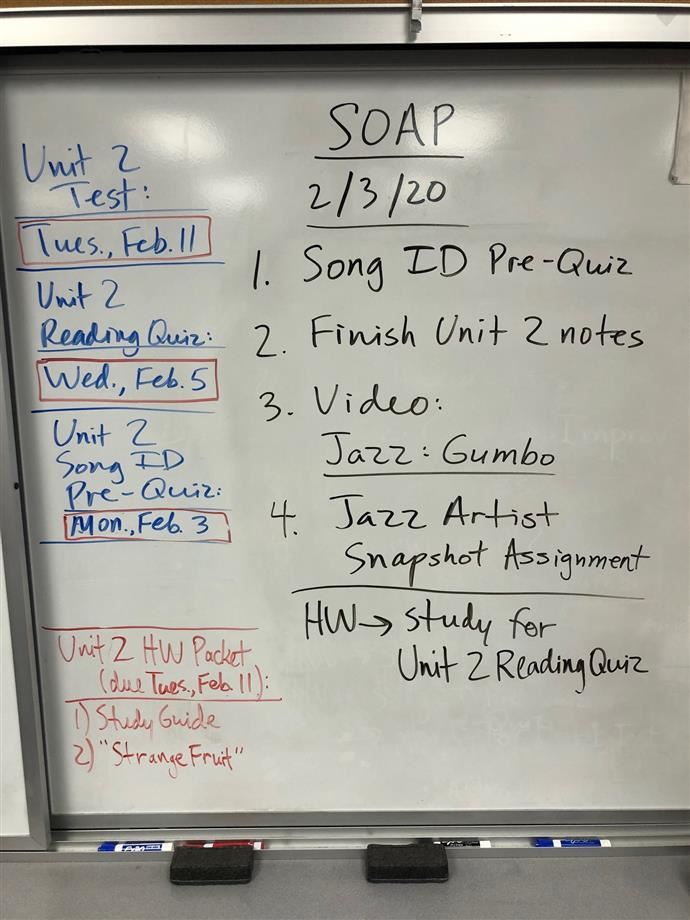 Unit 2
Test:
Tues., Feb. 11
Unit 2
Reading Quiz:
Wed., Feb. 5
Unit 2
Song ID
Pre-Quiz:
Mon., Feb. 3
Unit 2 HW Packet
(due Tues., Feb. 11):
1) Study Guide
2) "Strange Fruit"
SOAP
2/3/20
1. Song ID Pre-Quiz
2. Finish Unit 2 notes
3. Video:
Jazz: Gumbo
4. Jazz Artist
Snapshot Assignment
HW → Study for
Unit 2 Reading Quiz